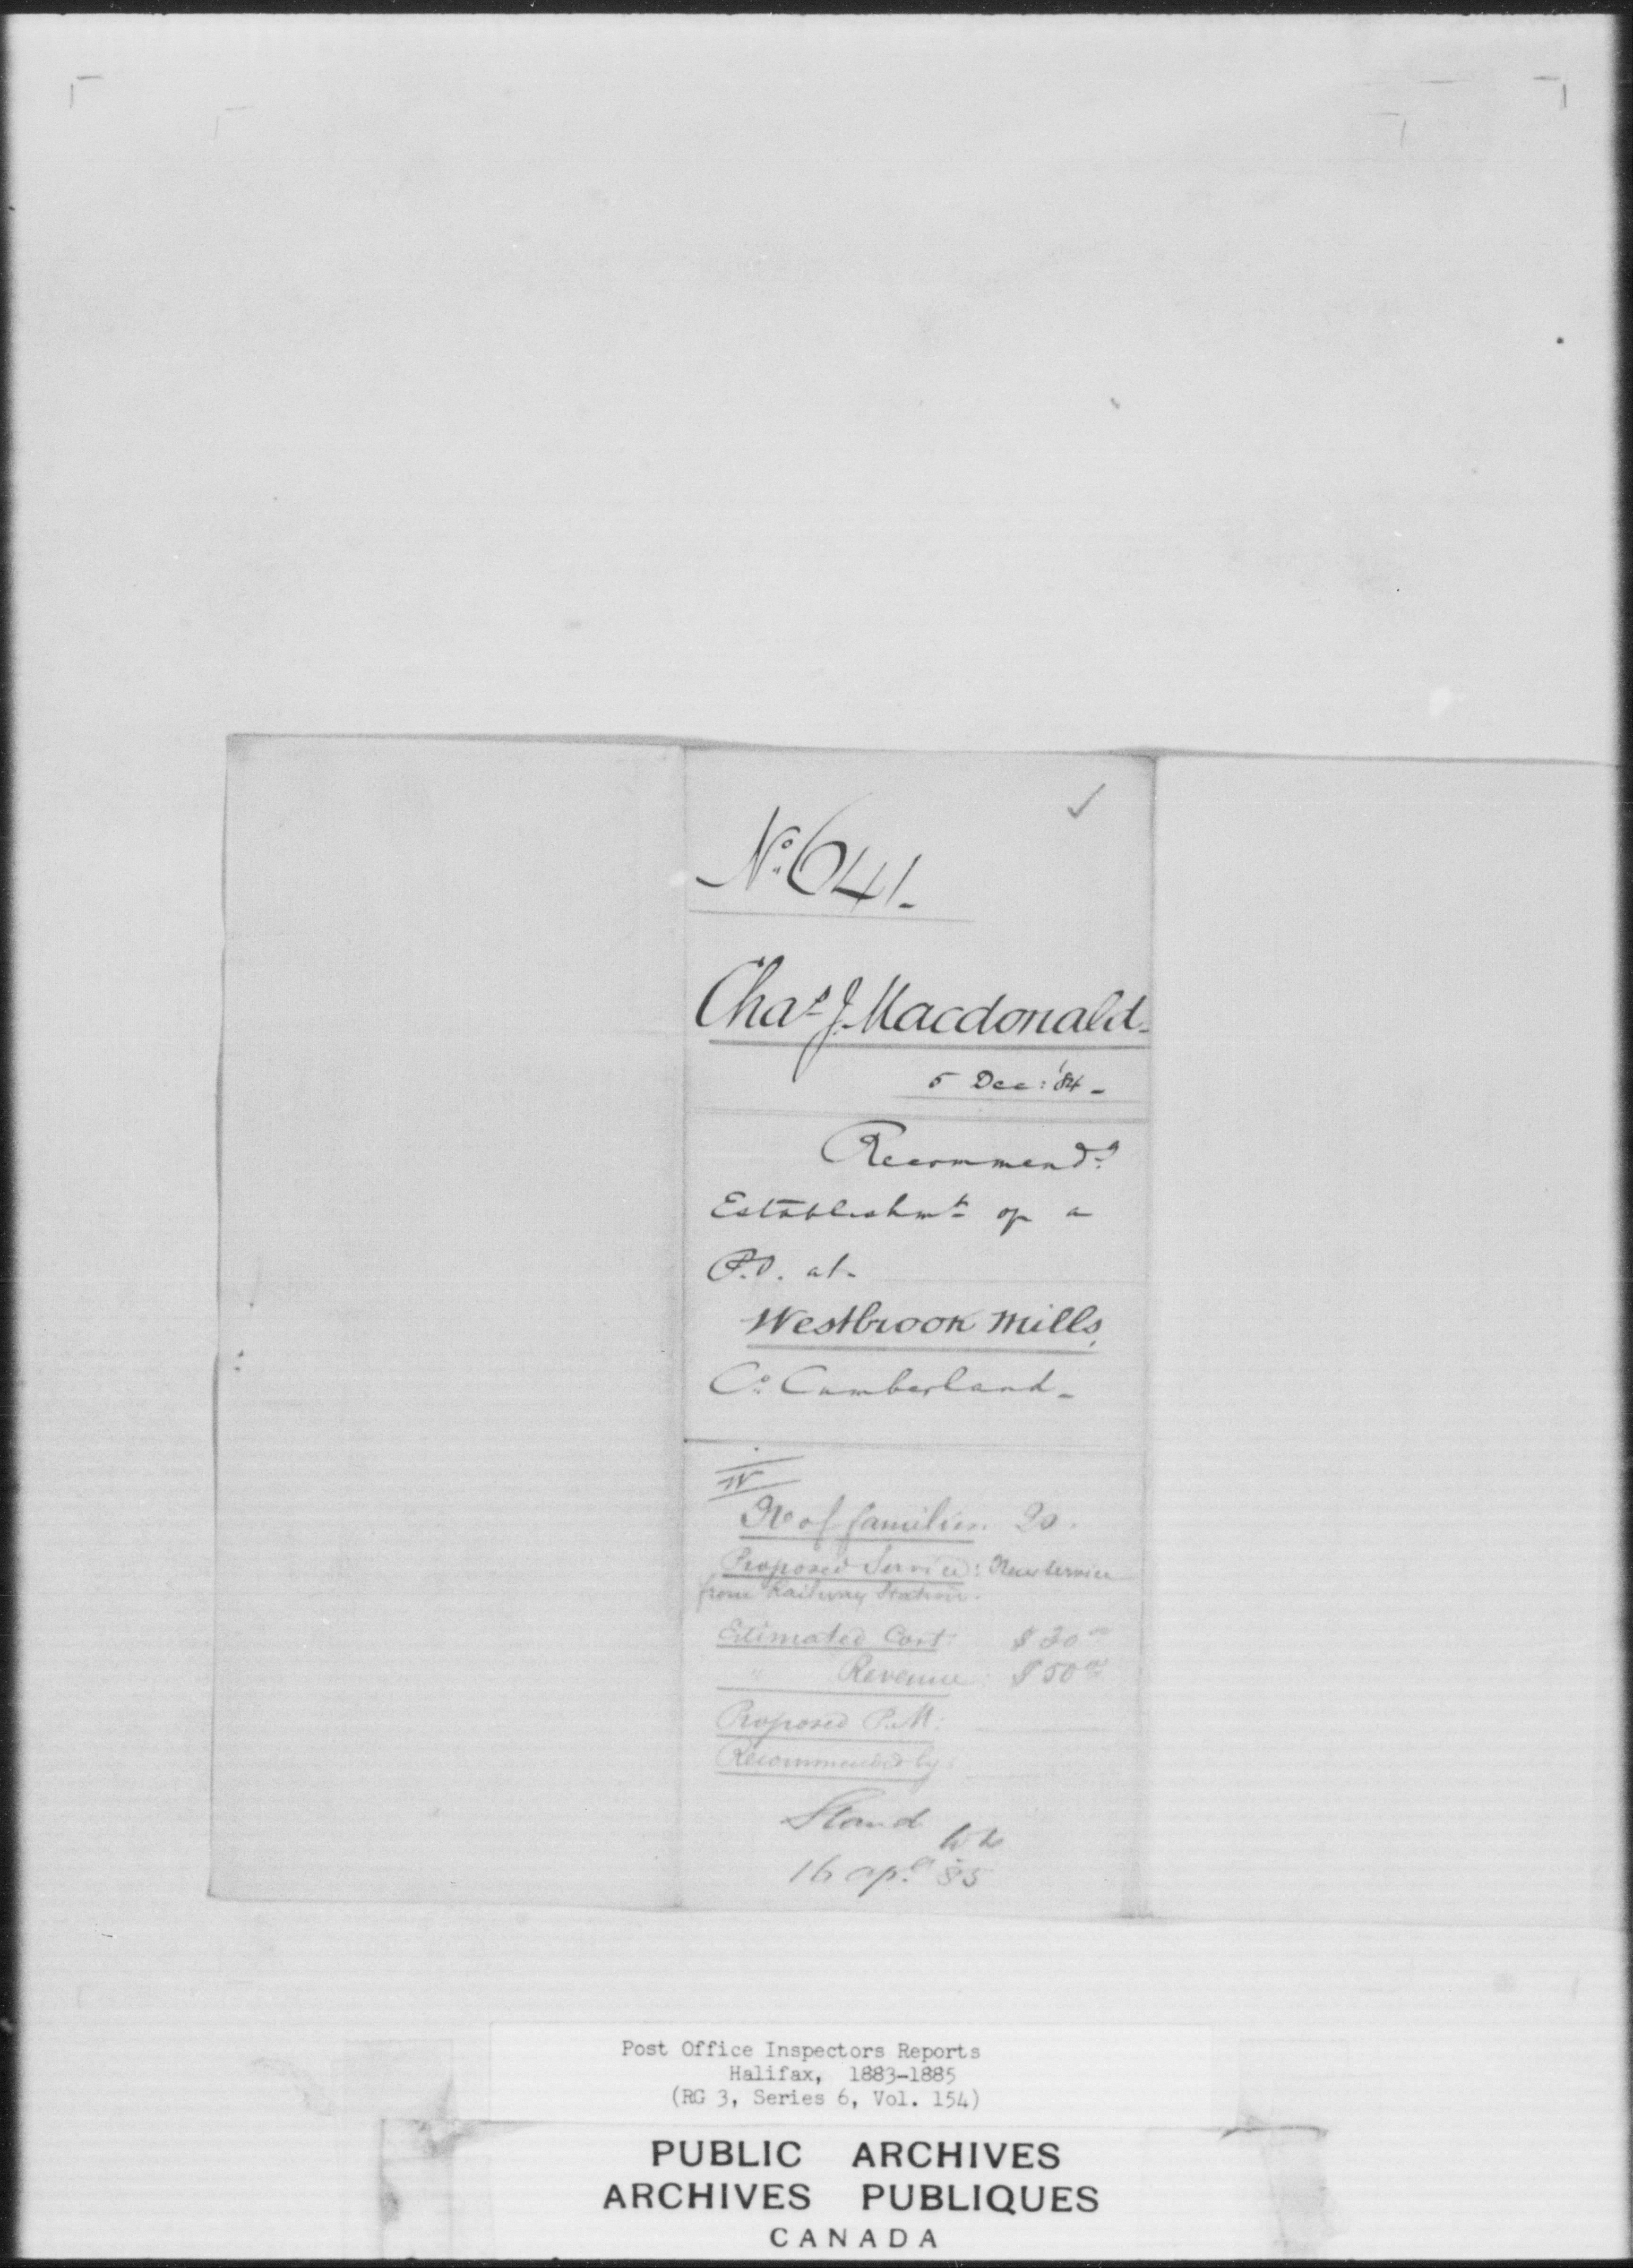 No. 641.
Chas. J. Macdonald.
5 Dec: '84 -
Recommends
Establishmt of a
P.O. at -
Westbrook Mills,
Co. Cumberland -
No of families. 20.
Proposed Service: New service
from Railway Station.
Estimated Cost $ 20 00
" Revenue: $ 50 00
Proposed P.M:
Recommended by:
Stand
16 Apl 85
Post Office Inspectors Reports
Halifax, 1883-1885
(RG 3, Series 6, Vol. 154)
PUBLIC ARCHIVES
ARCHIVES PUBLIQUES
CANADA